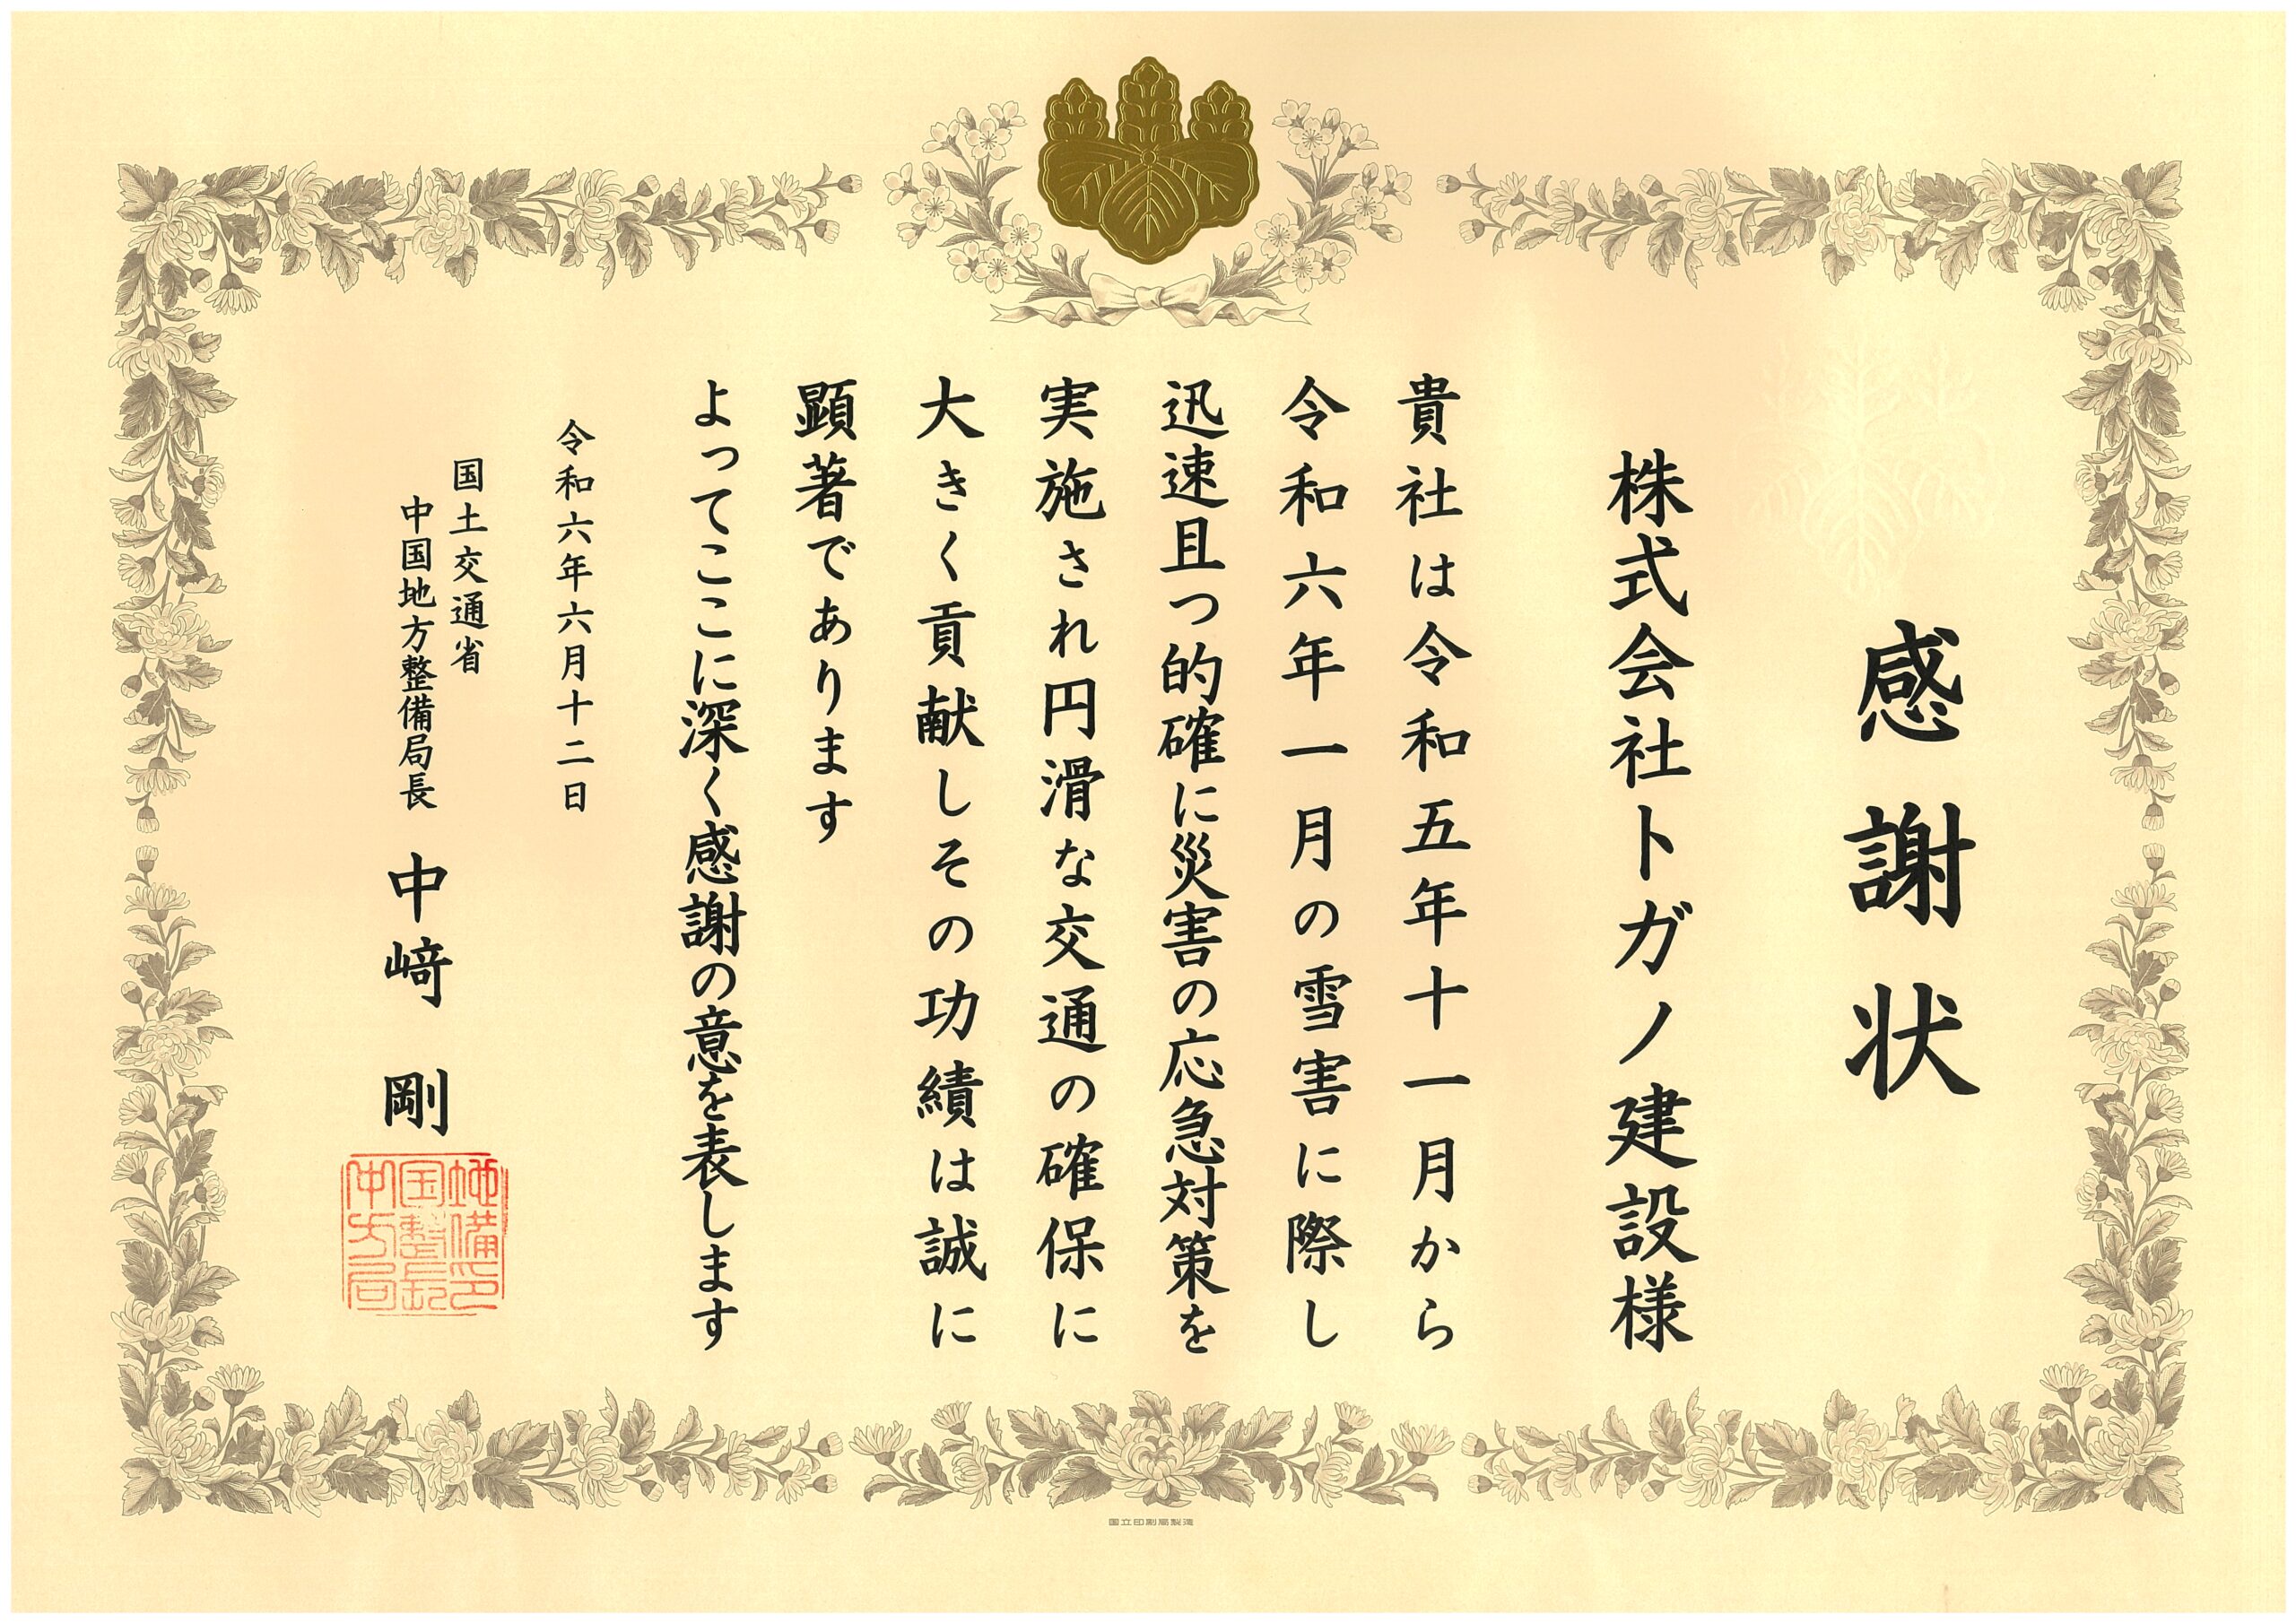 感謝状
株式会社トガノ建設様
貴社は令和五年十一月から
令和六年一月の雪害に際し
迅速且つ的確に災害の応急対策を
実施され円滑な交通の確保に
大きく貢献しその功績は誠に
顕著であります
よってここに深く感謝の意を表します
令和六年六月十二日
国土交通省
中国地方整備局長
中﨑 剛
中国地
方整備
局長印
国立印刷局製造